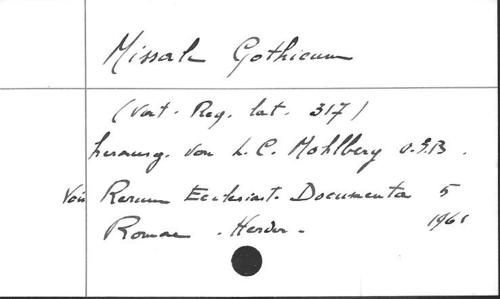 Missale Gothicum
(Vat. Reg. lat. 317)
herausg. von L. C. Mohlberg O.S.B.
Voir Rerum Ecclesiast. Documenta 5
Romae - Herder - 1961